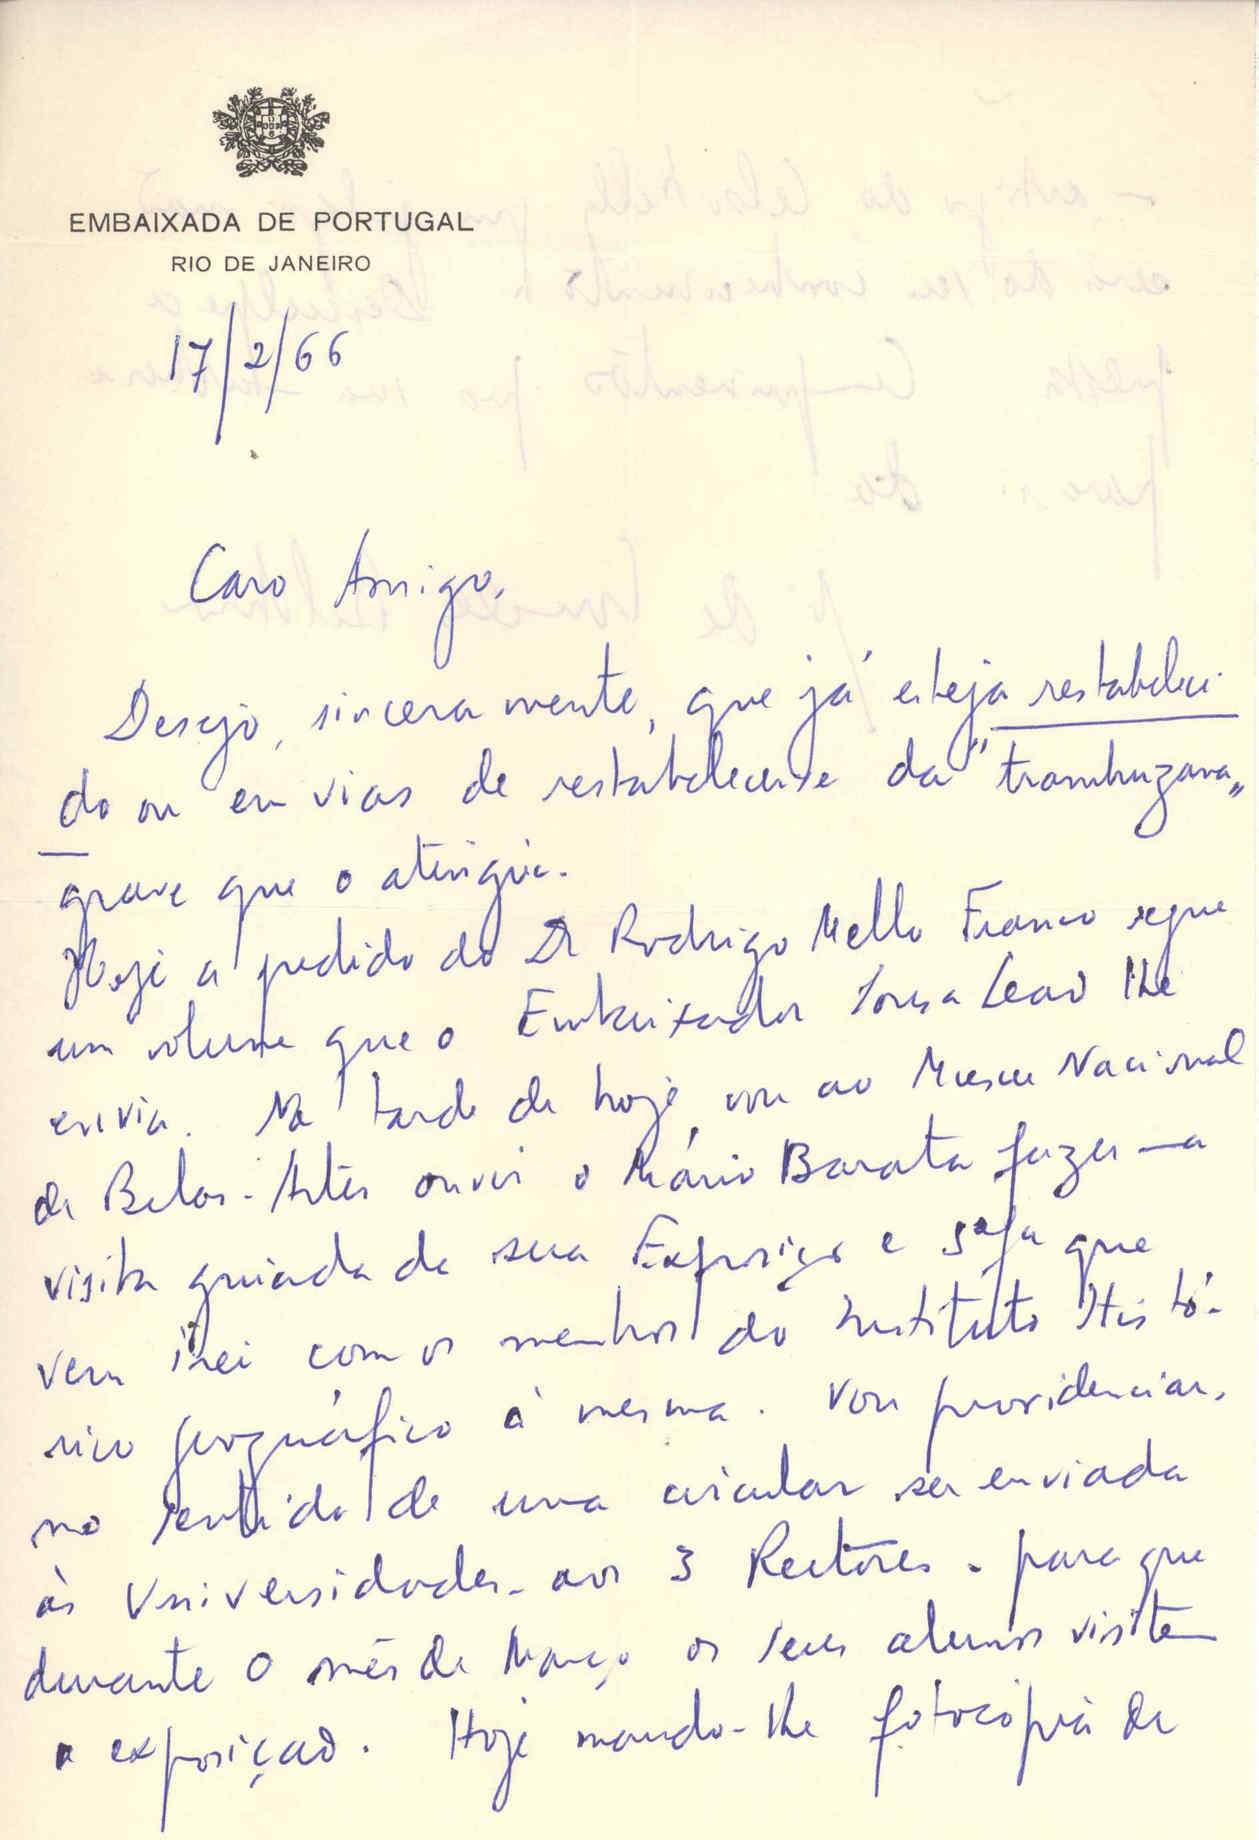 EMBAIXADA DE PORTUGAL
RIO DE JANEIRO
17/2/66
Caro Amigo,
Desejo, sinceramente, que já esteja restabeleci-
do ou em vias de restabelecer-se da "trambuzana"
grave que o atingiu.
Hoje a pedido do Dr Rodrigo Mello Franco segue
um volume que o Embaixador Sousa Leão lhe
envia. Na tarde de hoje, vou ao Museu Nacional
de Belas-Artes ouvir o Mário Barata fazer a
visita guiada da sua Exposição e 3ª fa que
vem irei com os membros do Instituto Histó-
rico Geográfico à mesma. Vou providenciar,
no sentido de uma circular ser enviada
às Universidades - aos 3 Reitores - para que
durante o mês de Março os seus alunos visitem
a exposição. Hoje mando-lhe fotocópia de